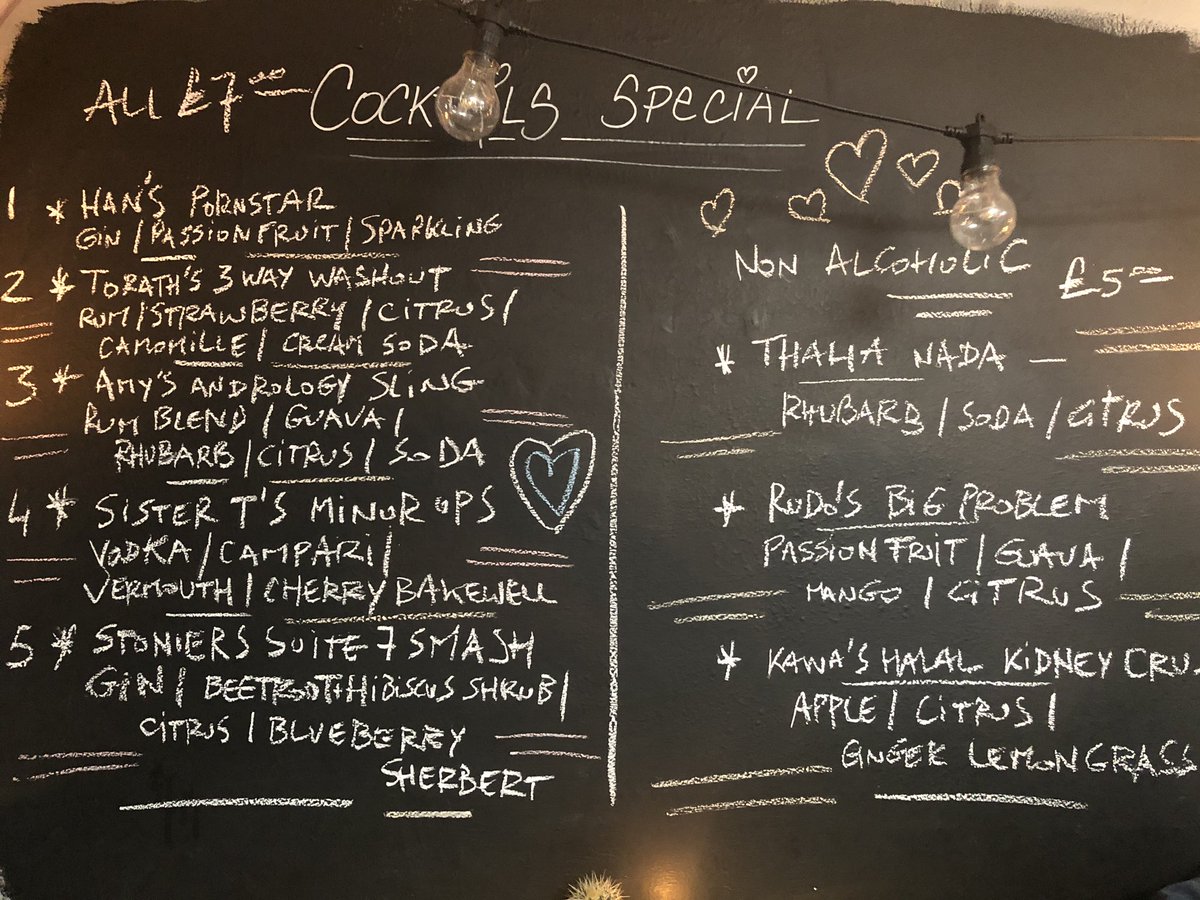 ALL £7.00 COCKTAILS SPECIAL
1 * HAN'S PORNSTAR
GIN / PASSIONFRUIT / SPARKLING
2 * TORATH'S 3 WAY WASHOUT
RUM / STRAWBERRY / CITRUS /
CAMOMILLE / CREAM SODA
3 * AMY'S ANDROLOGY SLING
RUM BLEND / GUAVA /
RHUBARB / CITRUS / SODA
4 * SISTER T'S MINOR OPS
VODKA / CAMPARI /
VERMOUTH / CHERRY BAKEWELL
5 * STONIERS SUITE 7 SMASH
GIN / BEETROOT+HIBISCUS SHRUB /
CITRUS / BLUEBERRY
SHERBERT
NON ALCOHOLIC £5.00
* THALIA NADA —
RHUBARB / SODA / CITRUS
* RUDO'S BIG PROBLEM
PASSION FRUIT / GUAVA /
MANGO / CITRUS
* KAWA'S HALAL KIDNEY CRU
APPLE / CITRUS /
GINGER LEMONGRASS